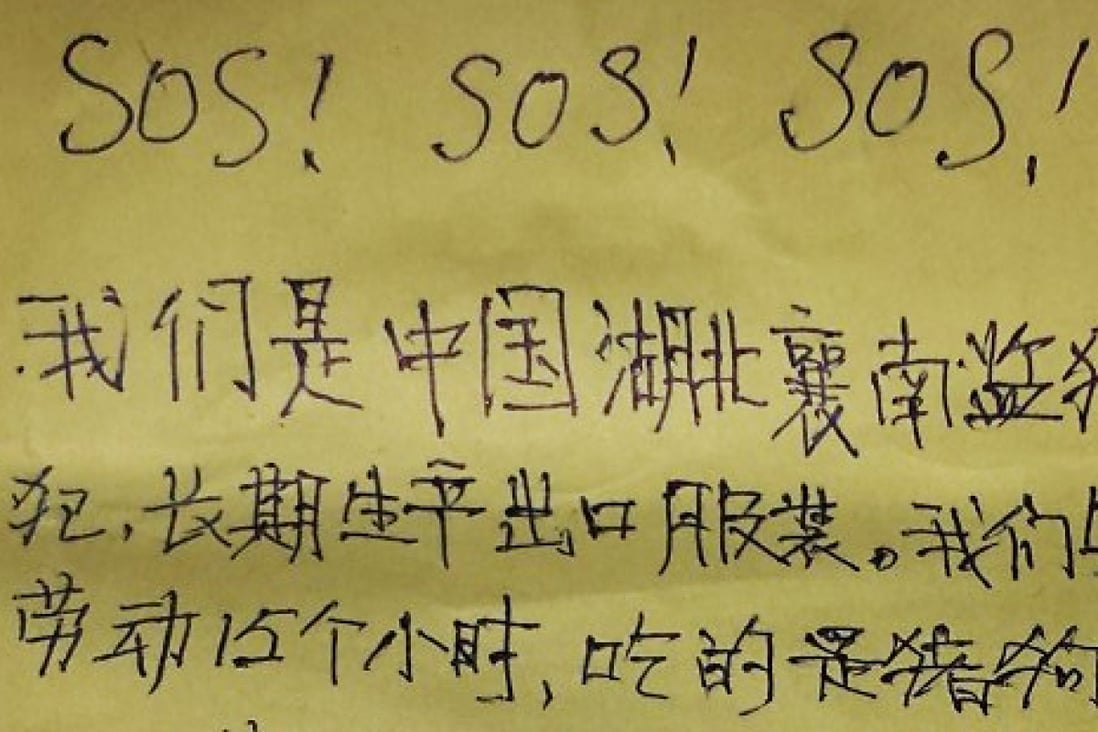 SOS! SOS! SOS!
我们是中国湖北襄南监
犯，长期生产出口服装。我们
劳动15个小时，吃的是猪狗